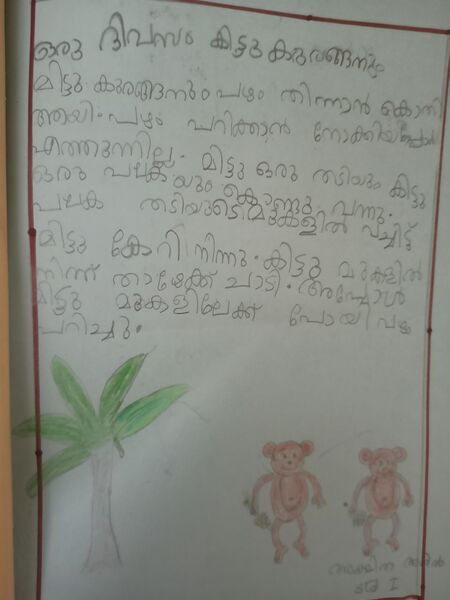 ഒരു ദിവസം കിട്ടു കുരങ്ങനും
മിട്ടു കുരങ്ങനും പഴം തിന്നാൻ കൊതി
ആയി. പഴം പറിക്കാൻ നോക്കിയപ്പോൾ
എത്തുന്നില്ല. മിട്ടു ഒരു തടിയും കിട്ടു
ഒരു പലകയും കൊണ്ടു വന്നു.
പലക തടിയുടെ മുകളിൽ വച്ചിട്ട്
മിട്ടു കേറി നിന്നു. കിട്ടു മുകളിൽ
നിന്ന് താഴേക്ക് ചാടി. അപ്പോൾ
മിട്ടു മുകളിലേക്ക് പോയി പഴം
പറിച്ചു.